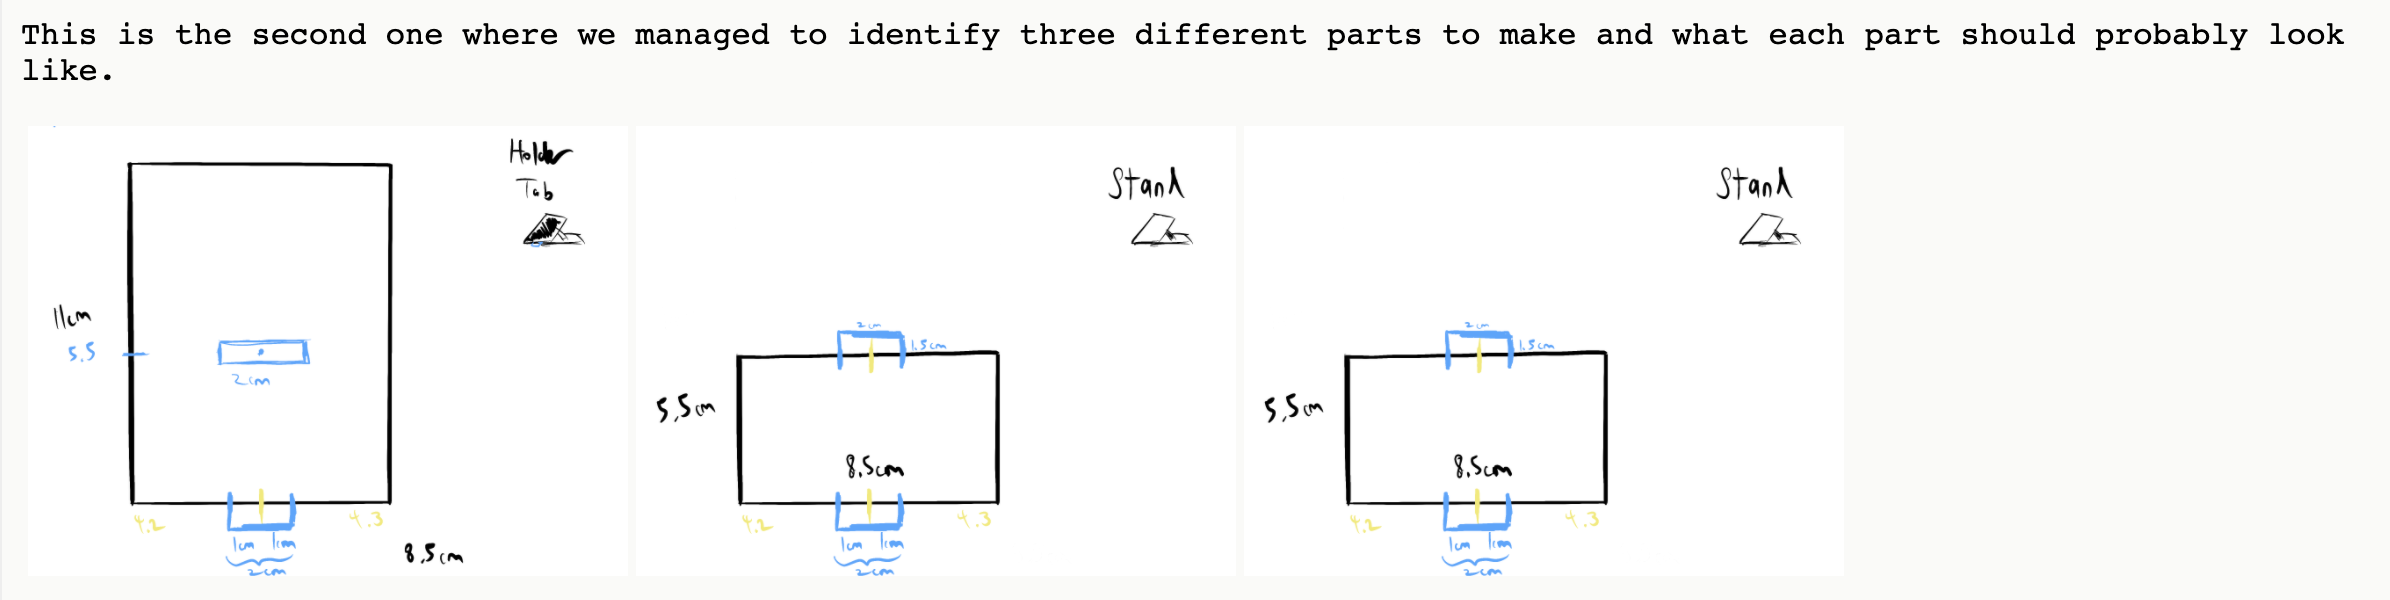 This is the second one where we managed to identify three different parts to make and what each part should probably look
like.
Holder
Tab
11cm
5.5
2cm
4.2
4.3
1cm 1cm
2cm
8.5cm
Stand
2cm
1.5cm
5.5cm
8.5cm
4.2
4.3
1cm 1cm
2cm
Stand
2cm
1.5cm
5.5cm
8.5cm
4.2
4.3
1cm 1cm
2cm